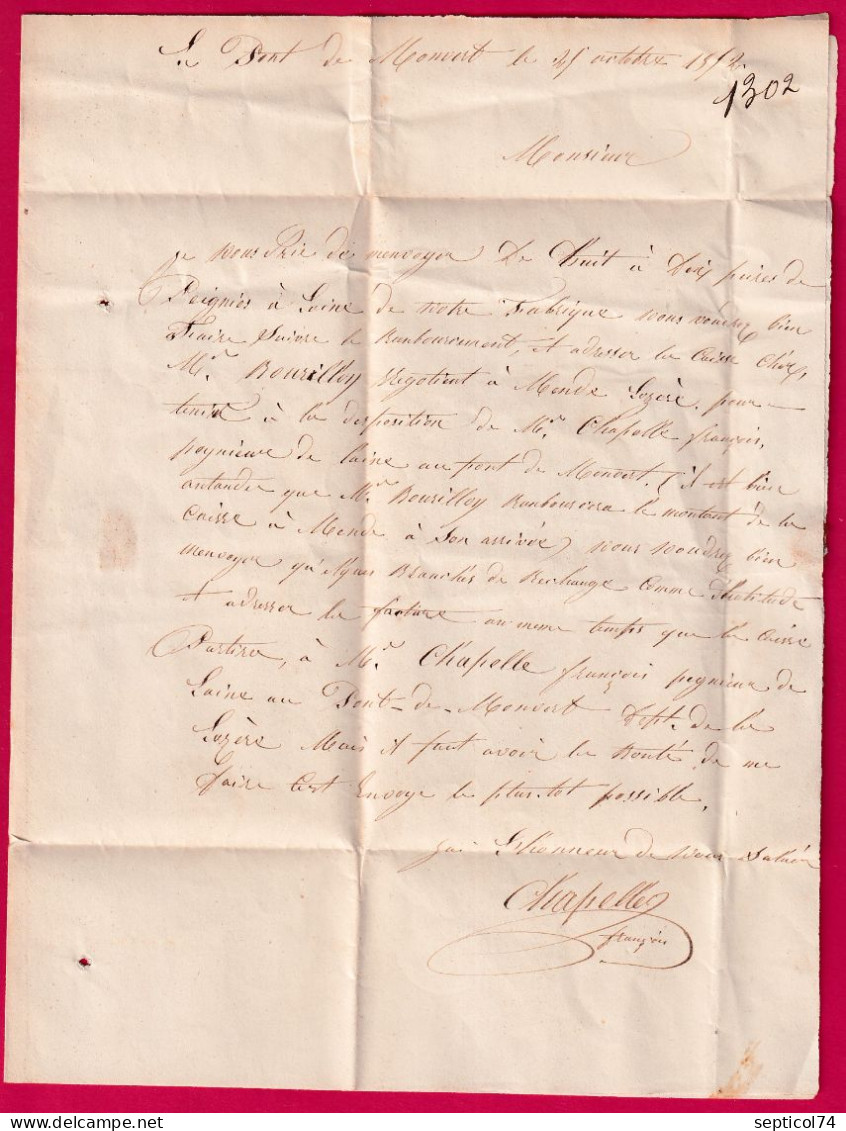 Le Pont de Monvert le 25 octobre 1852
1302
Monsieur
je vous Prie de menvoyer De Huit à Dix paires de
Peignies à Laine de votre Fabrique vous voudrez bien
Faire Suivre le Ranboursement, et adresser la caisse chez
Mr. Bourilloy Negotient à Mende Lozère. pour
tenir à la disposition de Mr. Chapelle françois,
peynieur de laine au pont de Monvert. il et bien
antandu que Mr. Bourilloy Ranboursera le montant de la
Caisse à Mende à Son arrivée, vous voudrez bien
menvoyer qu'elques Branches de Rechange comme
et adresser la facture au meme temps que la Caisse
Partira, à Mr. Chapelle françois pegnieur de
Laine au Pont-de-Monvert Dept. de la
Lozère Mais il faut avoir la Bonté de me
faire cest Envoye le plus tot possible,
jai L'honneur de vous Saluér
Chapelle
françois
septicol74